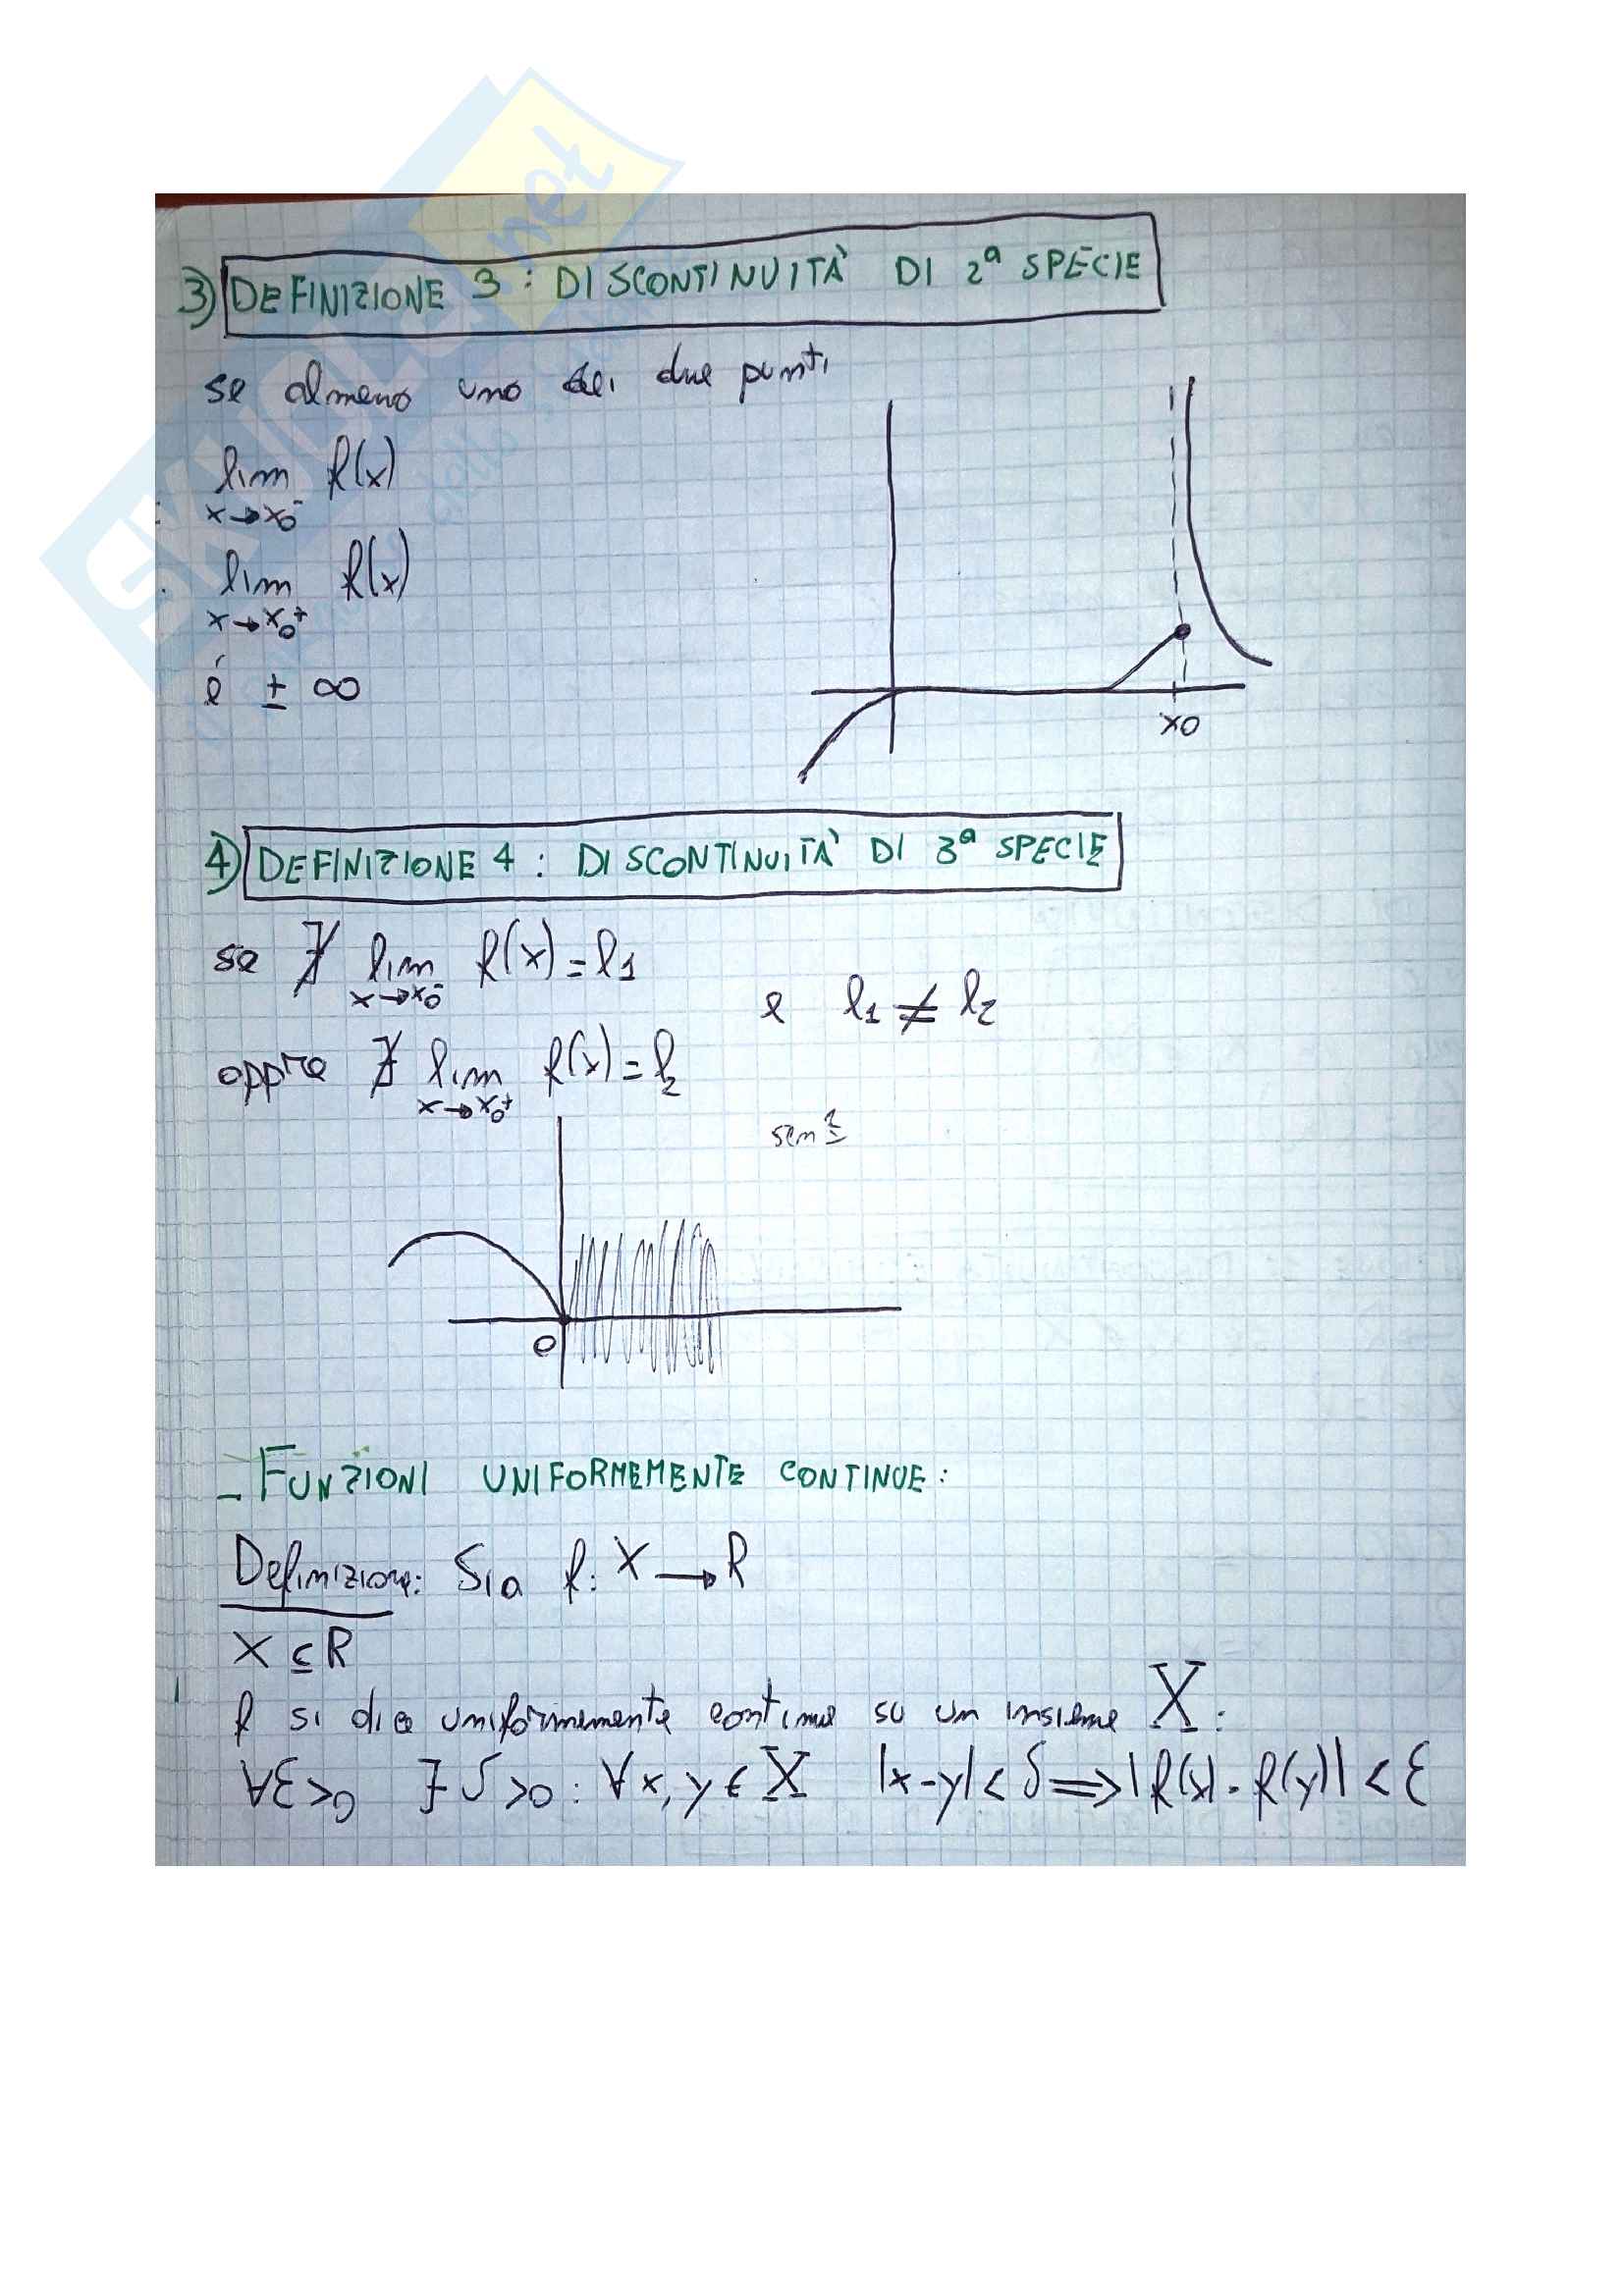 3) DEFINIZIONE 3 : DISCONTINUITÀ DI 2ª SPECIE
se almeno uno dei due punti
lim f(x)
x→x0⁻
lim f(x)
x→x0⁺
é ± ∞
x0
4) DEFINIZIONE 4 : DISCONTINUITÀ DI 3ª SPECIE
se ∄ lim f(x) = l1
x→x0⁻
e l1 ≠ l2
oppre ∄ lim f(x) = l2
x→x0⁺
sen
0
- FUNZIONI UNIFORMEMENTE CONTINUE :
Definizione: Sia f: X → R
X ⊆ R
f si dice uniformemente continua su un insieme X :
∀ε>0 ∃ δ>0 : ∀x, y ∈ X |x-y| < δ ⟹ |f(x) - f(y)| < ε
SKUOLA.net